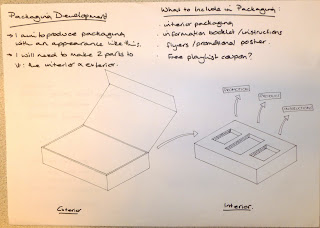 Packaging Development
→ I aim to produce packaging
with an appearance like this.
→ I will need to make 2 parts to
: the interior & exterior.
What to Include in Packaging:
· interior packaging
· information booklet / instructions
· flyers / promotional poster.
· Free playlist coupon?
PROMOTION
PRODUCT
INSTRUCTIONS
Exterior
Interior.